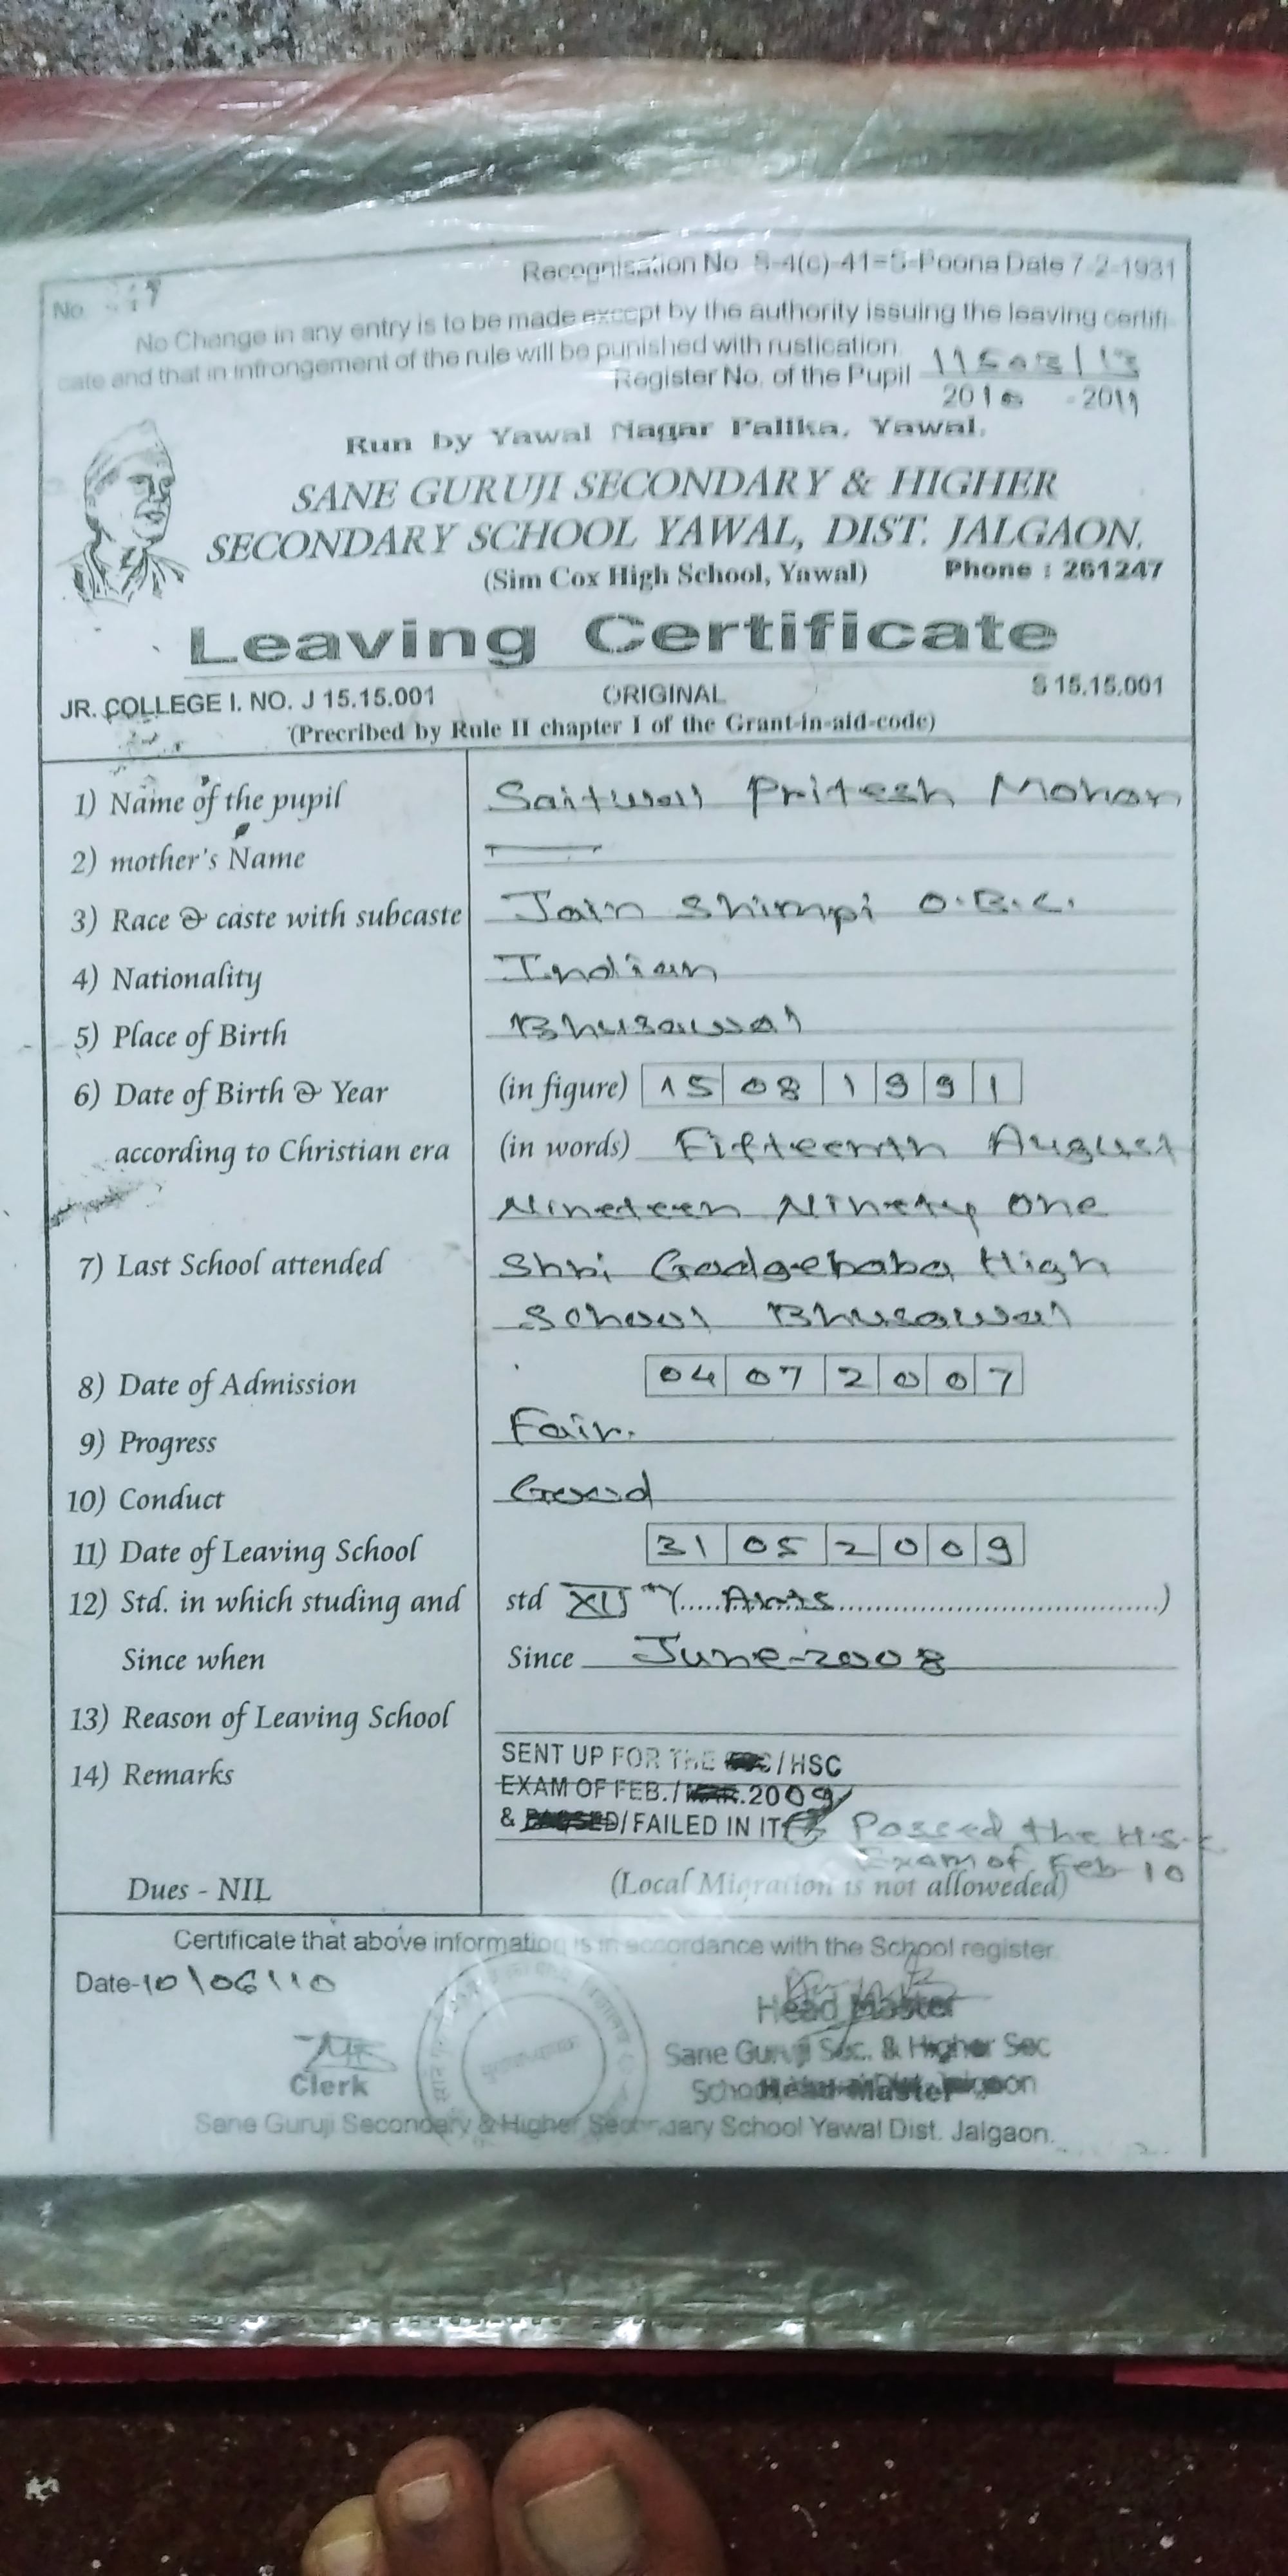 Recognisation No. S-4(c)-41=S-Poona Date 7-2-1931
No.
No Change in any entry is to be made except by the authority issuing the leaving certifi-
cate and that in infrongement of the rule will be punished with rustication.
Register No. of the Pupil
2010 - 2011
Run by Yawal Nagar Palika, Yawal.
SANE GURUJI SECONDARY & HIGHER
SECONDARY SCHOOL YAWAL, DIST. JALGAON.
(Sim Cox High School, Yawal) Phone : 261247
Leaving Certificate
JR. COLLEGE I. NO. J 15.15.001 ORIGINAL S 15.15.001
(Precribed by Rule II chapter I of the Grant-in-aid-code)
1) Name of the pupil Saitwal Pritesh Mohan
2) mother's Name
3) Race & caste with subcaste Jain Shimpi O.B.C.
4) Nationality Indian
5) Place of Birth Bhusawal
6) Date of Birth & Year (in figure) 15 08 1 9 9 1
according to Christian era (in words) Fifteenth August
Nineteen Ninety One
7) Last School attended Shri Gadgebaba High
School Bhusawal
8) Date of Admission 04 07 2 0 0 7
9) Progress Fair.
10) Conduct Good
11) Date of Leaving School 31 05 2 0 0 9
12) Std. in which studing and std XII th (..... Arts ..........)
Since when Since June-2008
13) Reason of Leaving School
14) Remarks SENT UP FOR THE /HSC
EXAM OF FEB./ .2009
& /FAILED IN IT Passed the H.S.C
Exam of Feb-10
Dues - NIL (Local Migration is not alloweded)
Certificate that above information is in accordance with the School register.
Date-10\06\10
Head Master
Sane Guruji Sec. & Higher Sec
Clerk
Sane Guruji Secondary & Higher Secondary School Yawal Dist. Jalgaon.